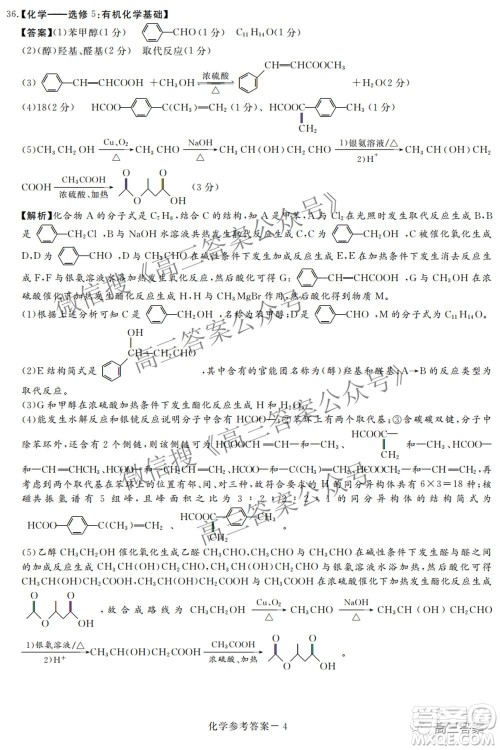 36.【化学——选修5:有机化学基础】
【答案】(1)苯甲醇(1分) CHO(1分) C₁₁H₁₄O(1分)
(2)(醇)羟基、醛基(2分) 取代反应(1分)
(3) CH=CHCOOH +CH₃OH 浓硫酸 △ CH=CHCOOCH₃ +H₂O(2分)
(4)18(2分) HCOO C(CH₃)=CH₂(1分) HCOOC CH₂ CH₃(1分)
(5)CH₃CH₂OH Cu,O₂ △ CH₃CHO NaOH CH₃CH(OH)CH₂CHO 1)银氨溶液/△ 2)H⁺ CH₃CH(OH)CH₂
COOH CH₃COOH 浓硫酸,加热 O O O OH (3分)
【解析】化合物A的分子式是C₇H₈,结合C的结构,可知A是甲苯,A与Cl₂在光照时发生取代反应生成B,B
是 CH₂Cl,B与NaOH水溶液共热发生取代反应生成C: CH₂OH,C被催化氧化生成
D,D为 CHO,D与乙醛在碱性条件下发生加成反应生成E,E在加热条件下发生消去反应生成F:
CH=CHCHO,F与银氨溶液水浴加热发生氧化反应,然后酸化可得G: CH=CHCOOH,G与甲醇在浓
硫酸催化下加热发生酯化反应生成H,H与CH₃MgBr作用生成M。
(1)根据上述分析可知:C是 CH₂OH,名称为苯甲醇,D是 CHO,M的分子式为C₁₁H₁₄O。
OH
(2)E结构简式是 CHCH₂CHO,其中含有的官能团名称为(醇)羟基和醛基;A→B的反应类型为
取代反应。
(3)G和甲醇在浓硫酸加热条件下发生酯化反应生成H和H₂O。
(4)能发生银镜反应和水解反应,水解产物遇FeCl₃溶液显紫色,则含有HCOO—;③含碳碳双键,分子中
除苯环外,还含有2个侧链,则侧链可为HCOO—和—CH=CHCH₃、HCOOC CH₂和—CH₃、HCOO—
和—CH₂CH=CH₂、HCOO—和—C(CH₃)=CH₂、HCOOCH=CH—和—CH₃、HCOO—CH₂—和—CH=CH₂,再
考虑到两个取代基在苯环上的位置有邻、间、对三种,所以可能的同分异构体的结构为6×3=18种;核
磁共振氢谱有5组峰,且峰面积之比为3:2:2:1:1的同分异构体的结构简式为
HCOO C(CH₃)=CH₂、HCOOC CH₂ CH₃。
(5)乙醇CH₃CH₂OH催化氧化生成乙醛CH₃CHO,CH₃CHO在碱性条件下发生醛与醛
的加成反应生成CH₃CH(OH)CH₂CHO,CH₃CH(OH)CH₂CHO与银氨溶液水浴加热发生氧化反应,然后酸化生成
CH₃CH(OH)CH₂COOH,CH₃CH(OH)CH₂COOH与CH₃COOH在浓硫酸加热条件下发生酯化反应生成
O O O OH,故合成路线为CH₃CH₂OH Cu,O₂ △ CH₃CHO NaOH CH₃CH(OH)CH₂CHO
1)银氨溶液/△ 2)H⁺ CH₃CH(OH)CH₂COOH CH₃COOH 浓硫酸,加热 O O O OH。
化学参考答案－4
微信搜《高三答案公众号》
微信搜《高三答案公众号》
高三答案